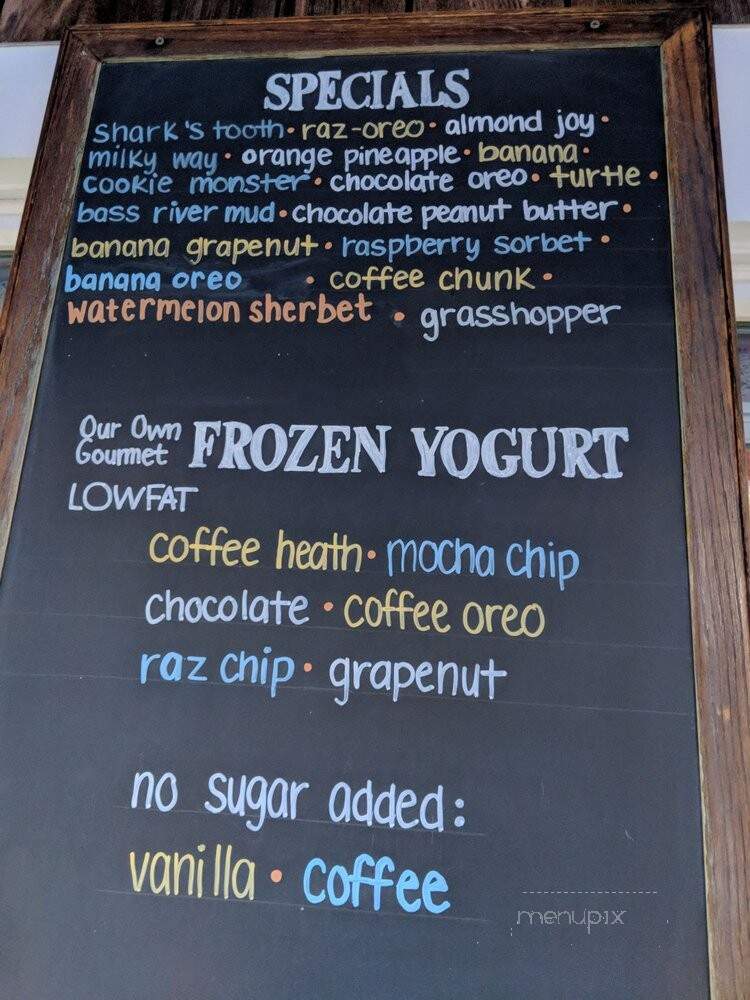 SPECIALS
shark's tooth • raz-oreo • almond joy •
milky way • orange pineapple • banana •
cookie monster • chocolate oreo • turtle •
bass river mud • chocolate peanut butter •
banana grapenut • raspberry sorbet •
banana oreo • coffee chunk •
watermelon sherbet • grasshopper
Our Own
Gourmet FROZEN YOGURT
LOWFAT
coffee heath • mocha chip
chocolate • coffee oreo
raz chip • grapenut
no sugar added:
vanilla • coffee
menupix